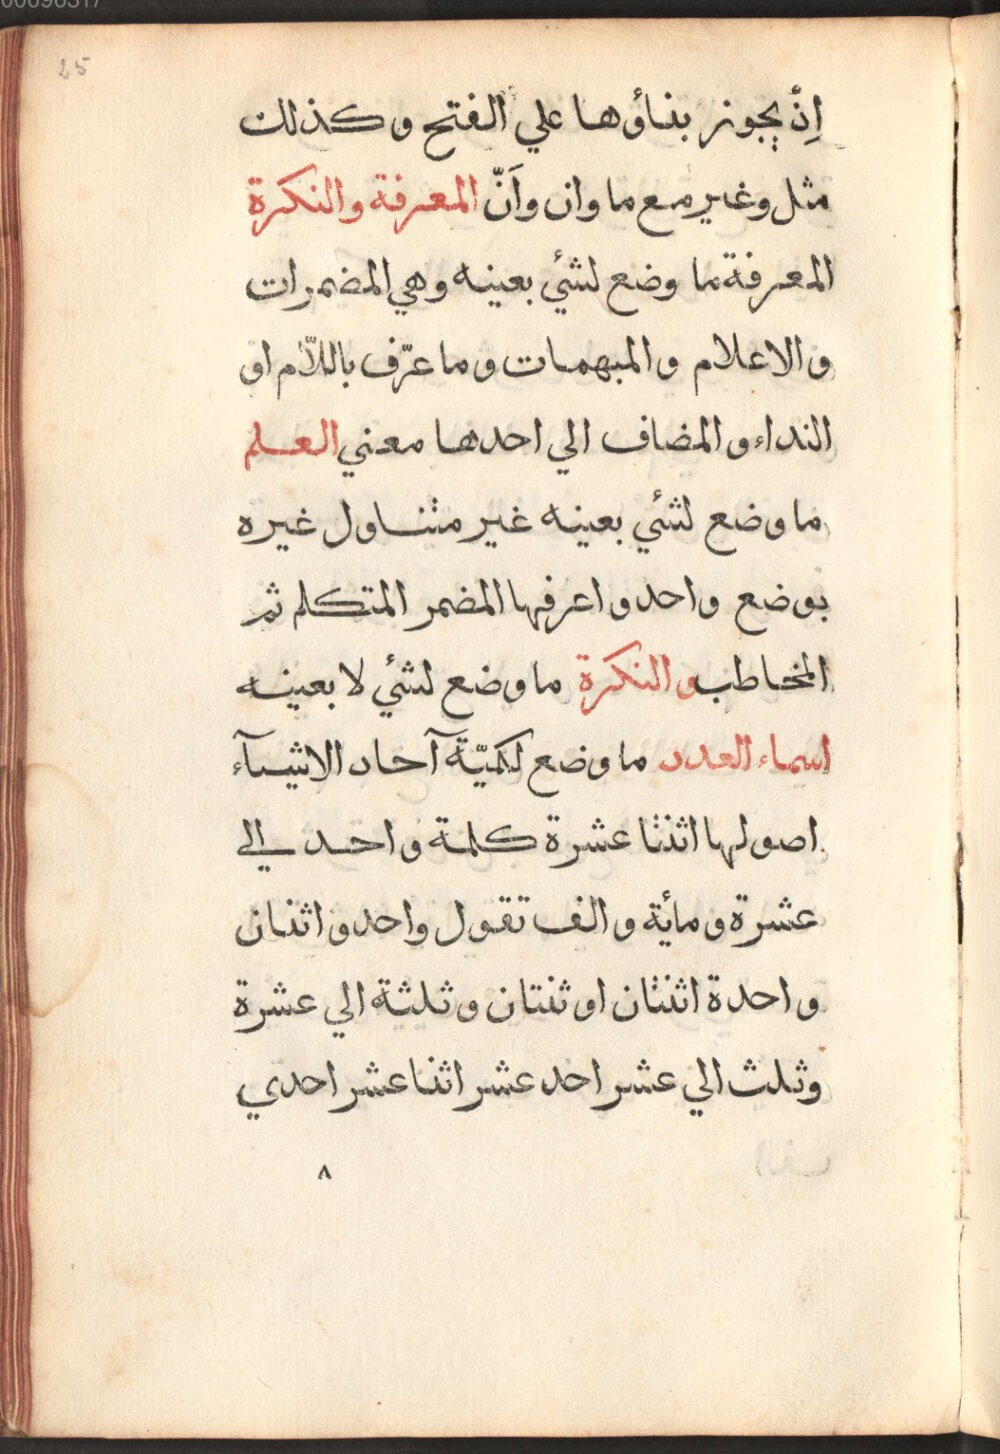 25
اِنّ يجوز بناؤها علي الفتح وكذلك
مثل وغير مع ما وان واَنّ المعرفة والنكرة
المعرفة ما وضع لشئي بعينه وهي المضمرات
والاعلام والمبهمات وما عرّف باللاّم او
النداء والمضاف الي احدها معني العلم
ما وضع لشئي بعينه غير متناول غيره
بوضع واحد واعرفها المضمر المتكلم ثم
المخاطب والنكرة ما وضع لشئي لا بعينه
اسماء العدد ما وضع لكميّة آحاد الاشيآء
اصولها اثنتا عشرة كلمة واحد الي
عشرة ومائة والف تقول واحد واثنان
واحدة اثنتان او ثنتان وثلثة الي عشرة
وثلث الي عشر احد عشر اثنا عشر احدي
٨